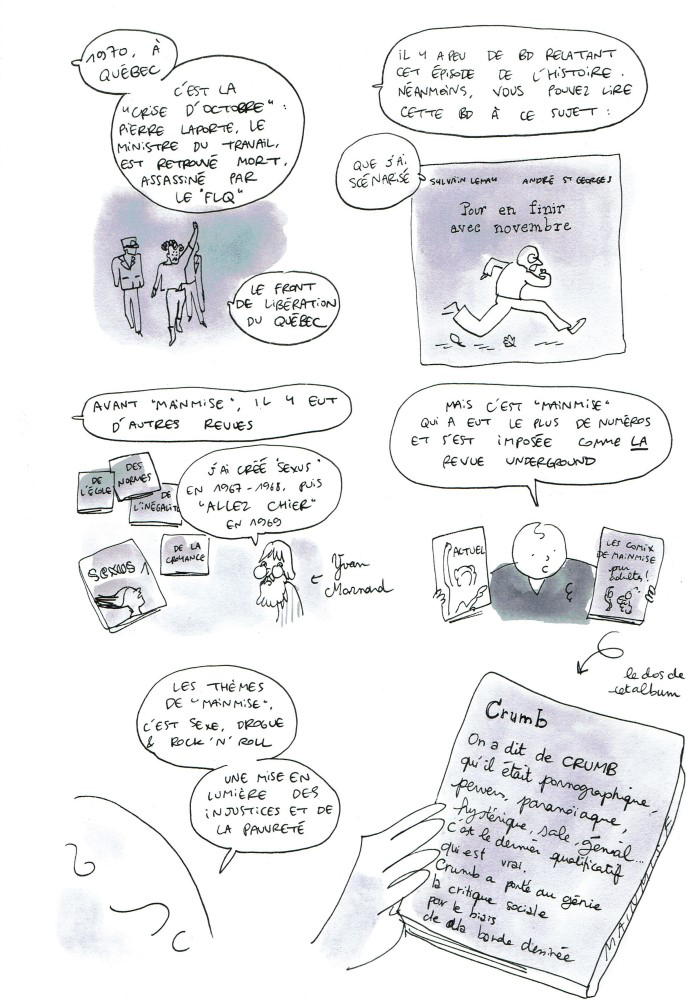 1970, À
QUÉBEC
C'EST LA
"CRISE D'OCTOBRE" :
PIERRE LAPORTE, LE
MINISTRE DU TRAVAIL,
EST RETROUVÉ MORT,
ASSASSINÉ PAR
LE "FLQ"
LE FRONT
DE LIBÉRATION
DU QUÉBEC
IL Y A PEU DE BD RELATANT
CET ÉPISODE DE L'HISTOIRE.
NÉANMOINS, VOUS POUVEZ LIRE
CETTE BD À CE SUJET :
QUE J'AI
SCÉNARISÉ
SYLVAIN LEMAY ANDRÉ ST GEORGES
Pour en finir
avec novembre
AVANT "MAINMISE", IL Y EUT
D'AUTRES REVUES
DE
L'ÉCOLE
DES
NORMES
DE
L'INÉGALITÉ
DE LA
CROYANCE
SEXUS 1
J'AI CRÉÉ "SEXUS"
EN 1967-1968, PUIS
"ALLEZ CHIER"
EN 1969
Yvan
Mornard
MAIS C'EST "MAINMISE"
QUI A EUT LE PLUS DE NUMÉROS
ET S'EST IMPOSÉE COMME LA
REVUE UNDERGROUND
ACTUEL
LES COMIX
DE MAINMISE
pour
adultes !
le dos de
cet album
LES THÈMES
DE "MAINMISE",
C'EST SEXE, DROGUE
& ROCK 'N' ROLL
UNE MISE EN
LUMIÈRE DES
INJUSTICES ET DE
LA PAUVRETÉ
Crumb
On a dit de CRUMB
qu'il était pornographique,
pervers, paranoïaque,
hystérique, sale, génial...
C'est le dernier qualificatif
qui est vrai.
Crumb a porté au génie
la critique sociale
par le biais
de la bande dessinée
MAINMISE